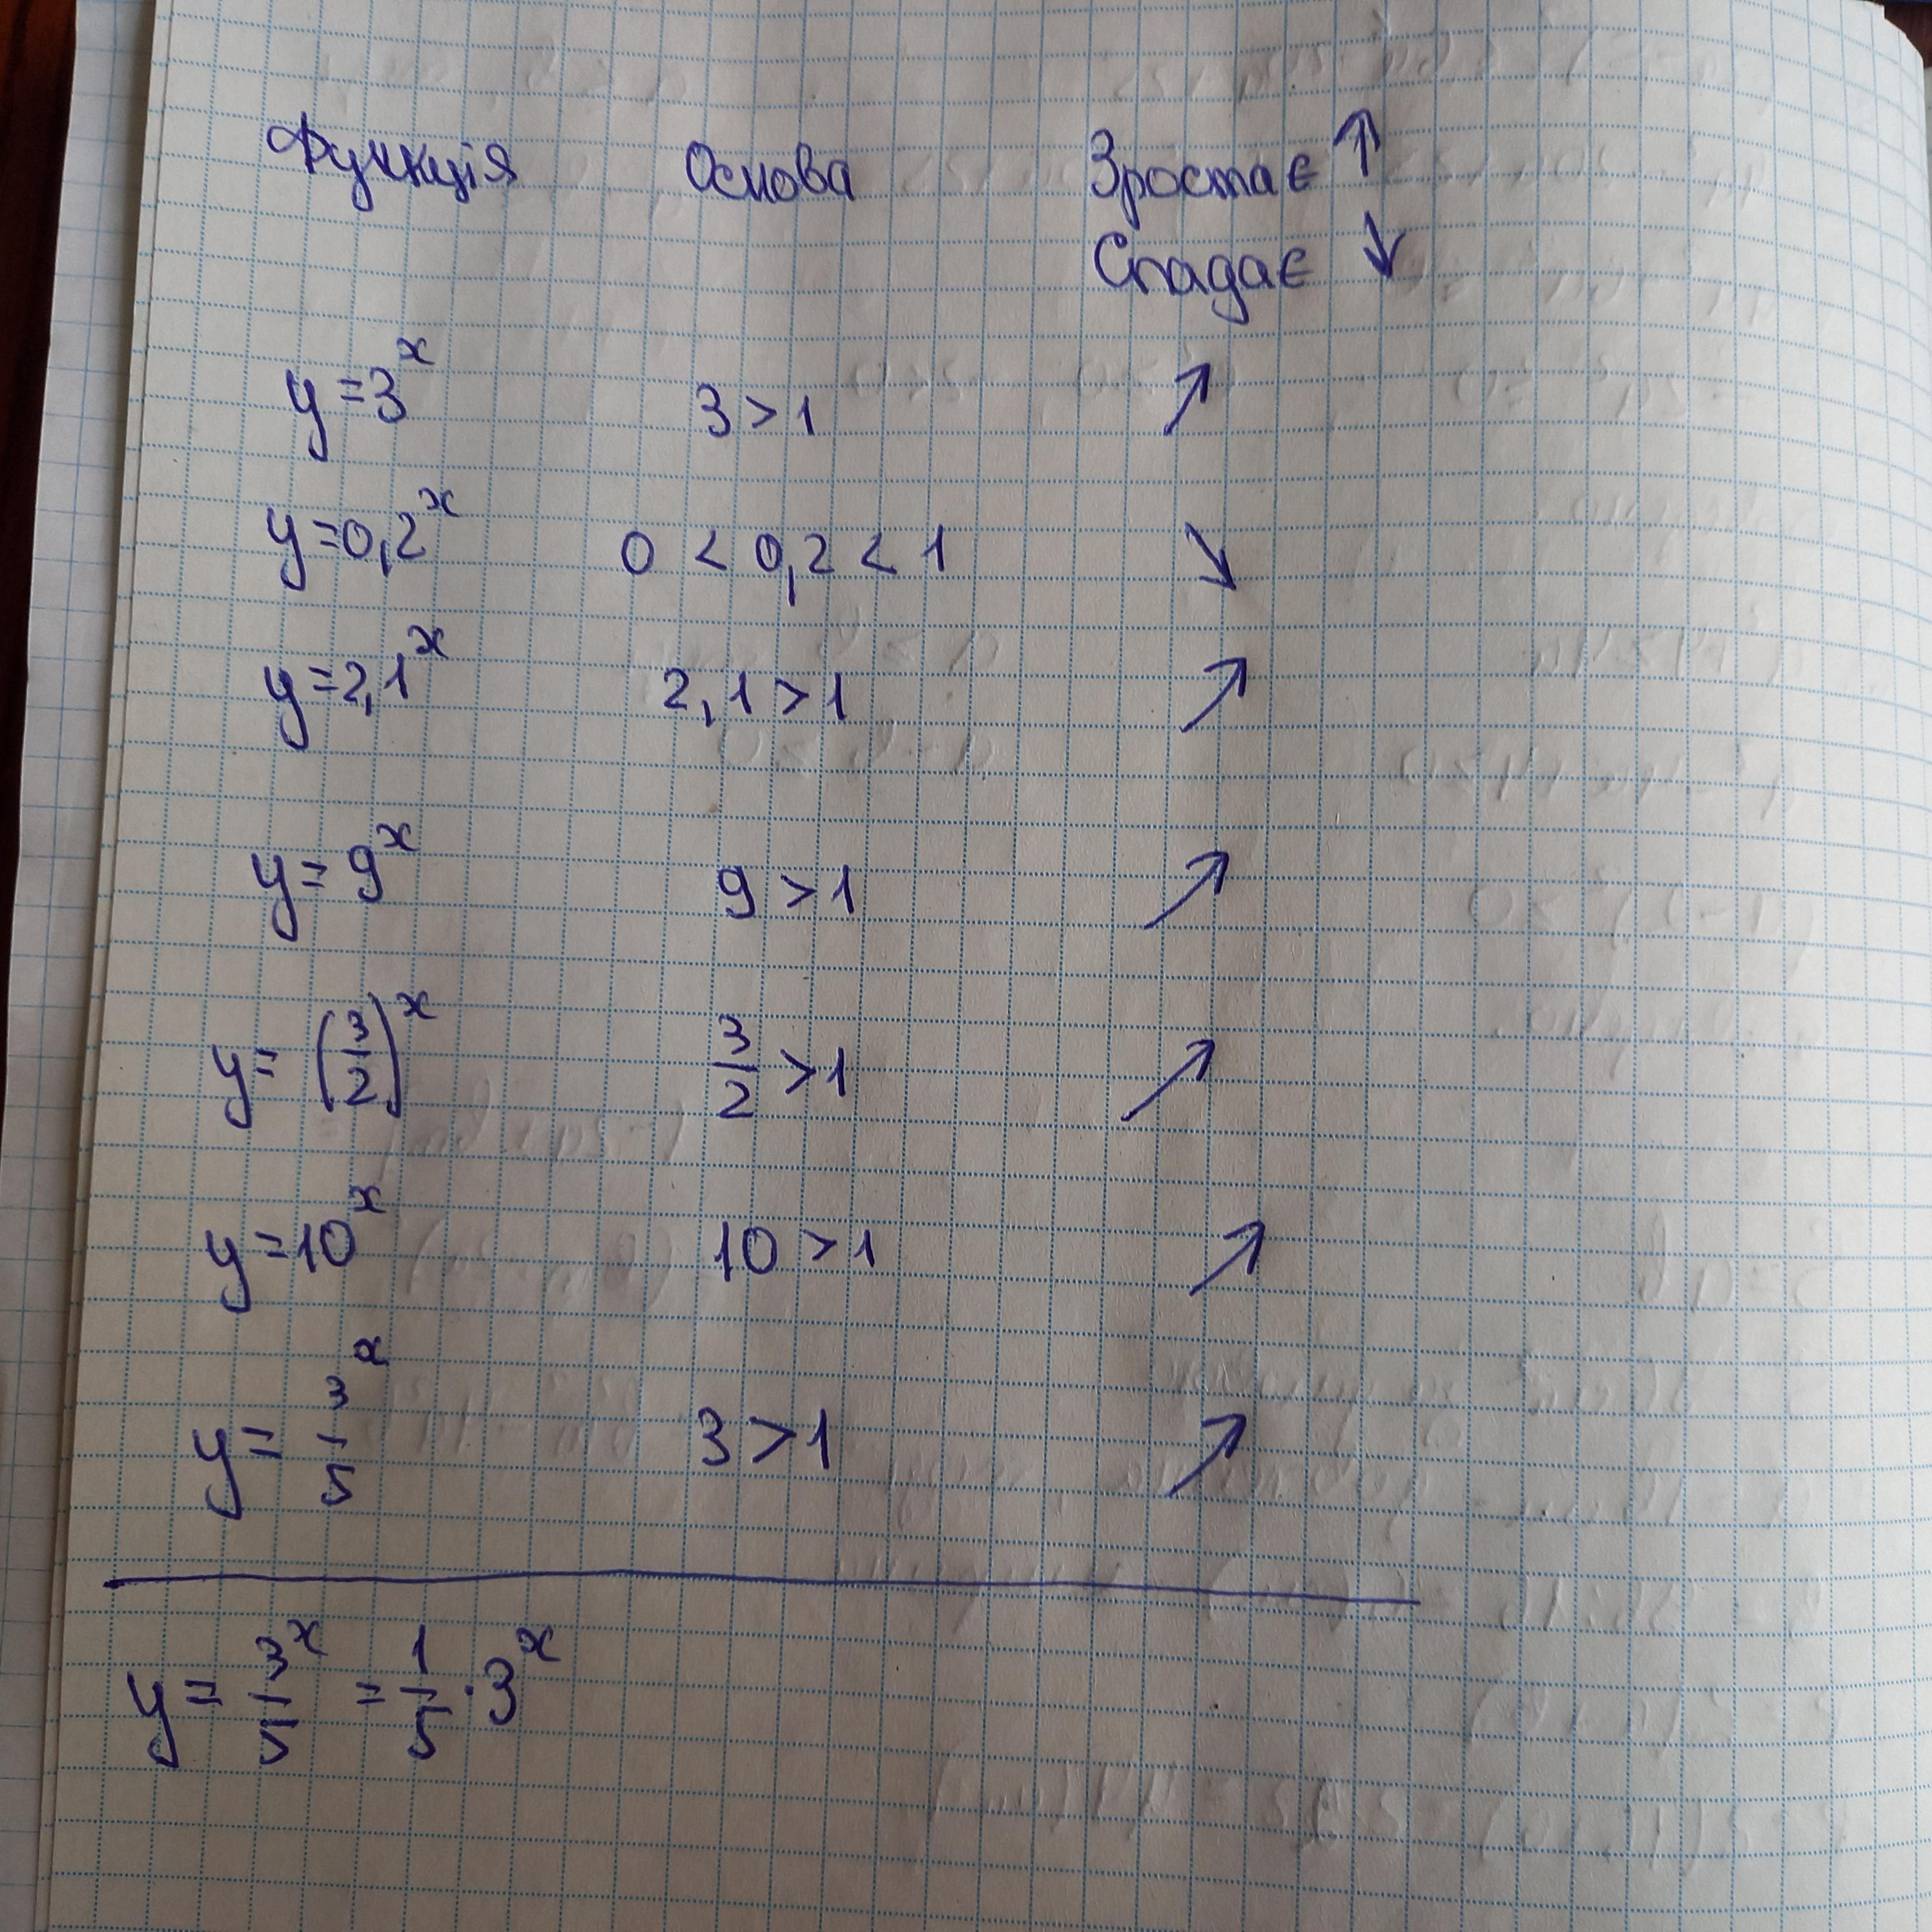 Функція Основа Зростає ↑
Спадає ↓
y=3^x 3>1 ↗
y=0,2^x 0 < 0,2 < 1 ↘
y=2,1^x 2,1>1 ↗
y=9^x 9>1 ↗
y=(3/2)^x 3/2>1 ↗
y=10^x 10>1 ↗
y=3^x/5 3>1 ↗
y=3^x/5=1/5·3^x